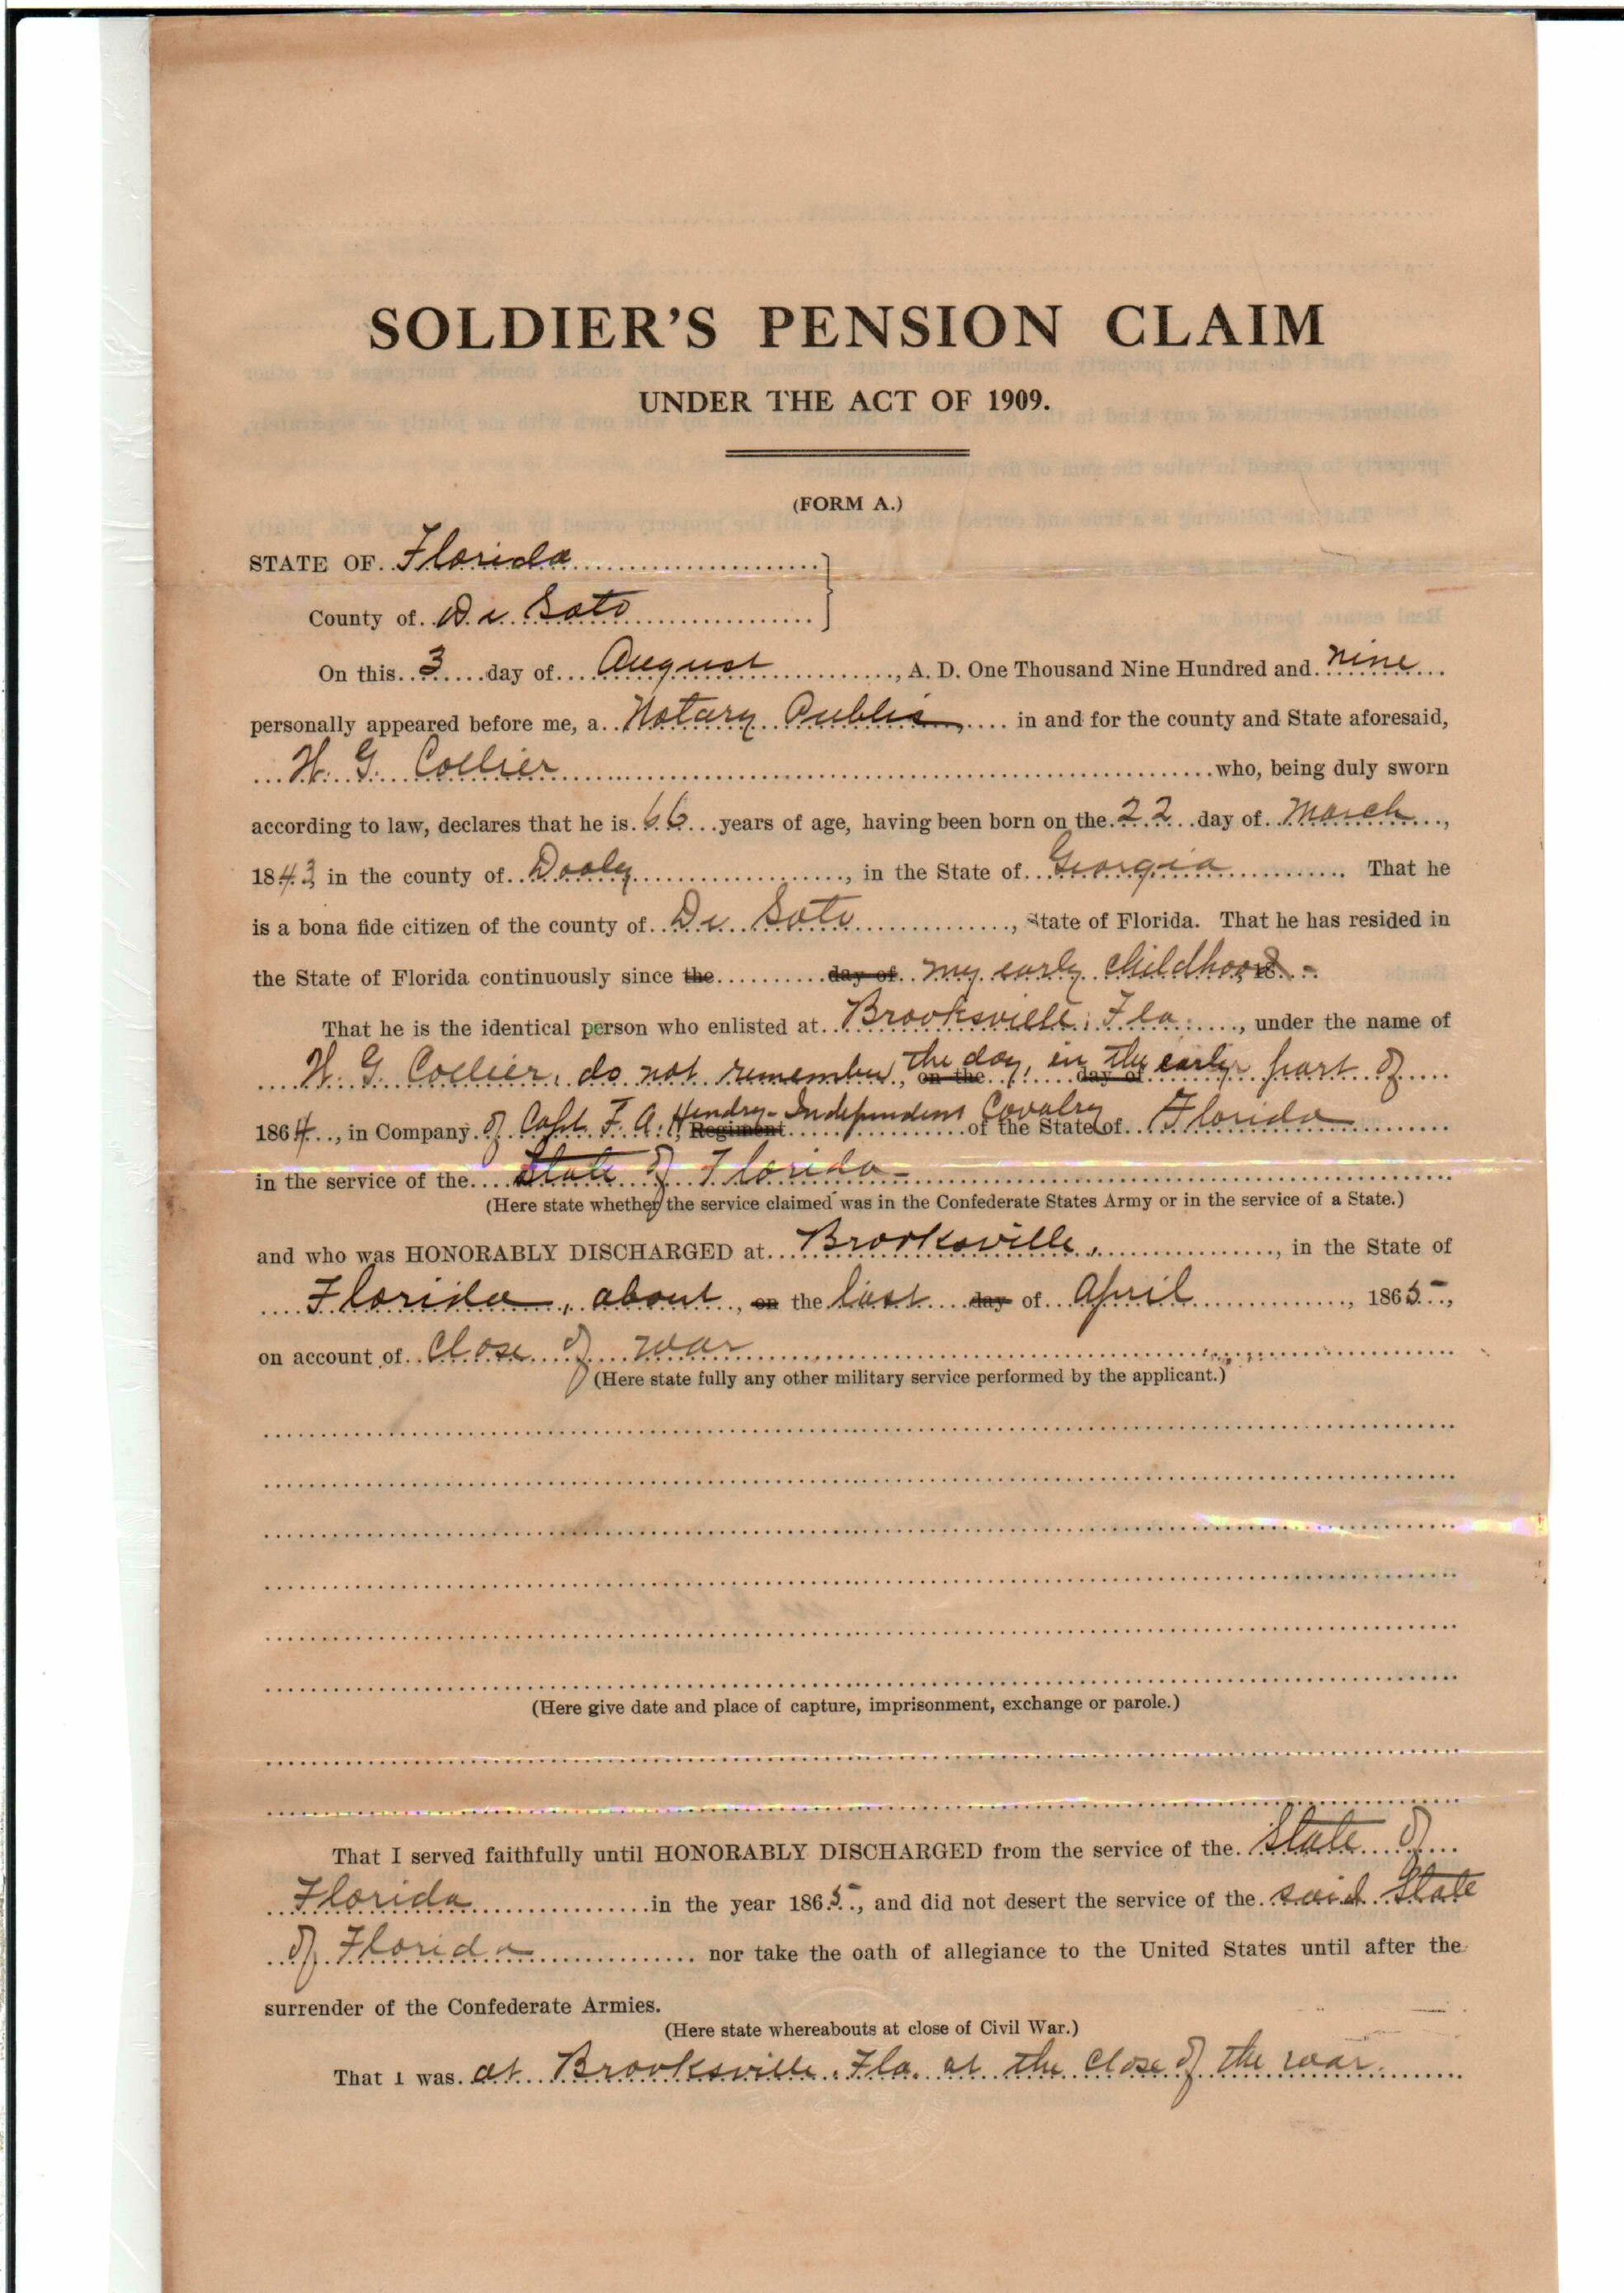 SOLDIER'S PENSION CLAIM
UNDER THE ACT OF 1909.
(FORM A.)
STATE OF Florida
County of De Soto
On this 3 day of August, A. D. One Thousand Nine Hundred and nine
personally appeared before me, a Notary Public, in and for the county and State aforesaid,
W. G. Collier who, being duly sworn
according to law, declares that he is 66 years of age, having been born on the 22 day of March,
1843 in the county of Dooly, in the State of Georgia. That he
is a bona fide citizen of the county of De Soto, State of Florida. That he has resided in
the State of Florida continuously since the day of my early childhood 18
That he is the identical person who enlisted at Brooksville, Fla., under the name of
W. G. Collier, do not remember, the day, on the in the day of early part of
1864, in Company of Capt. F. A. Hendry - Independent Cavalry Regiment of the State of Florida
in the service of the State of Florida
(Here state whether the service claimed was in the Confederate States Army or in the service of a State.)
and who was HONORABLY DISCHARGED at Brooksville, in the State of
Florida, about, on the last day of April, 1865,
on account of Close of war
(Here state fully any other military service performed by the applicant.)
(Here give date and place of capture, imprisonment, exchange or parole.)
That I served faithfully until HONORABLY DISCHARGED from the service of the State of
Florida in the year 1865, and did not desert the service of the said State
of Florida nor take the oath of allegiance to the United States until after the
surrender of the Confederate Armies.
(Here state whereabouts at close of Civil War.)
That I was at Brooksville, Fla. at the close of the war.